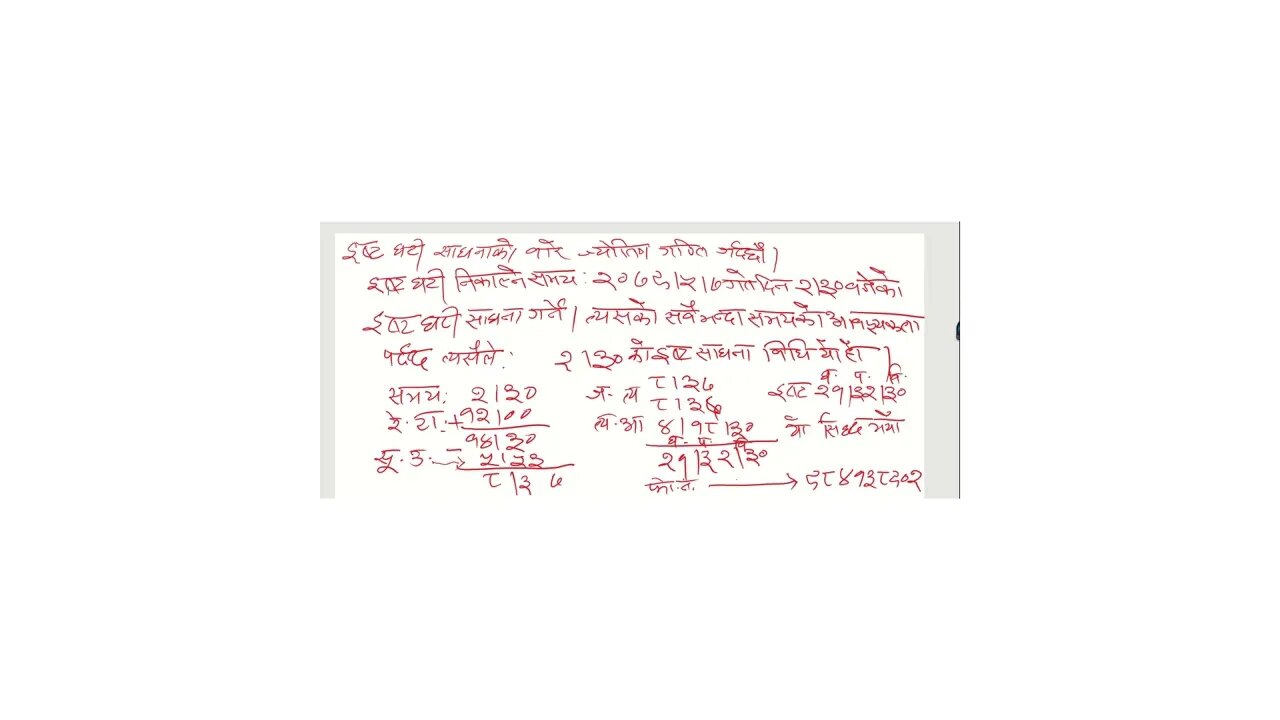 इष्ट घटी साधनाको बारे ज्योतिष गणित गर्दछौं।
इष्ट घटी निकाल्ने समय: २०७९।५।७ गते दिन २।३० बजेको
इष्ट घटी साधना गर्ने। त्यसको सबै भन्दा समयको आवश्यकता
पर्दछ त्यसैले: २।३० को इष्ट साधना विधि यो हो।
समय: २।३०
रे.टा.+१२।००
१४।३०
सू.उ. → - ५।५३
८।३७
ज. त्य ८।३७
८।३७
त्य.आ ४।१८।३०
घ. प. वि
२१।३२।३०
घ. प. वि.
इष्ट २१।३२।३०
यो सिद्ध भयो
फो.नं. → ९८४१३८९०२